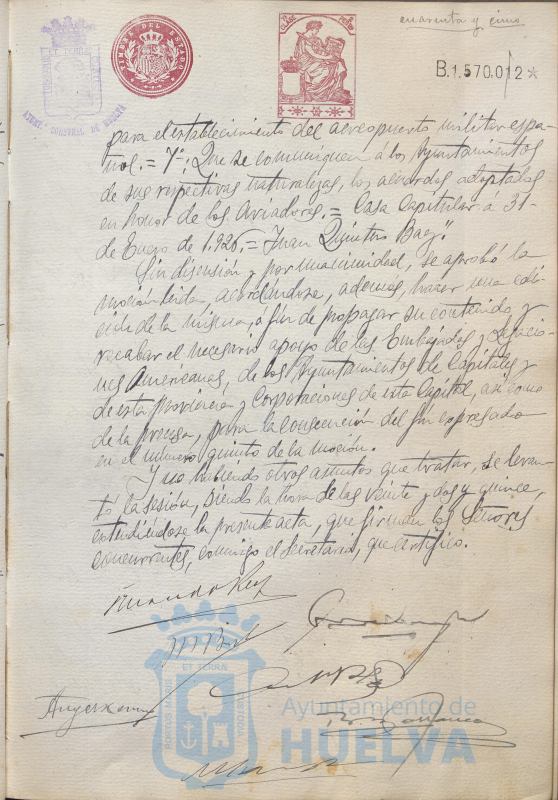 cuarenta y cinco
B.1.570.012*
TIMBRE DEL ESTADO
AYUNTº CONSTNAL DE HUELVA
para el establecimiento del aereopuerto militar espa-
ñol.= 7º: Que se comuniquen á los Ayuntamientos
de sus respectivas naturalezas, los acuerdos adoptados
en honor de los Aviadores.= Casa Capitular a 31-
de Enero de 1.926.= Juan Quintero Baez".
Sin discusión y por unanimidad, se aprobó la
moción leida, acordándose, además, hacer una edi-
ción de la misma, á fin de propagar su contenido, y
recabar el necesario apoyo de las Embajadas y Legacio-
nes Americanas, de los Ayuntamientos de Capitales y
de esta provincia y Corporaciones de esta Capital, asi como
de la prensa, para la consecución del fin expresado
en el número quinto de la moción.
Y no habiendo otros asuntos que tratar, se levan-
tó la sesión, siendo la hora de las veinte y dos y quince,
extendiéndose la presente acta, que firman los Señores
concurrentes, conmigo el Secretario, que certifico.
PORTUS MARIS ET TERRÆ CUSTODIA
Ayuntamiento de
HUELVA